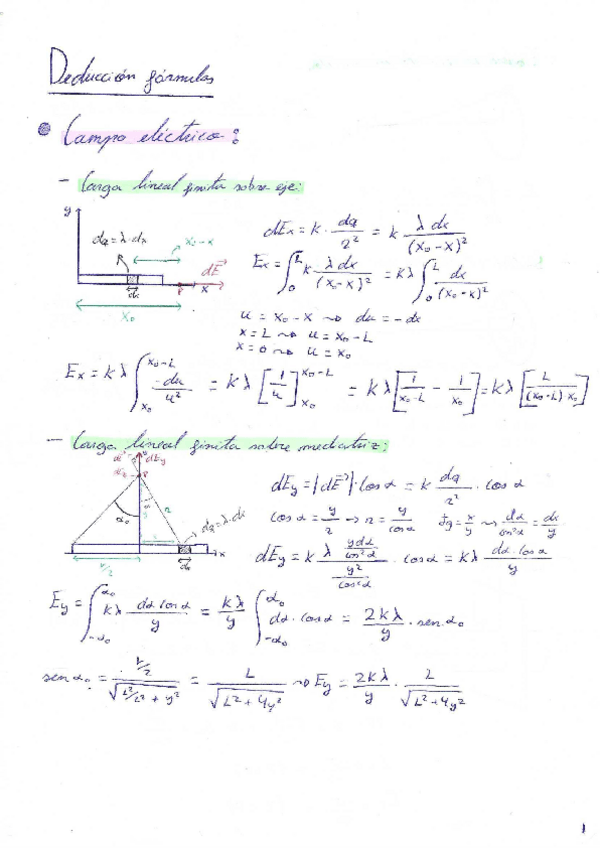 Deducción fórmulas
Campo eléctrico:
- Carga lineal finita sobre eje:
y
dq = λ·dx
x₀-x
dE⃗
dx
P
x
x₀
dEx = k · dq/r² = k λdx/(x₀-x)²
Ex = ∫₀ᴸ k λdx/(x₀-x)² = kλ ∫₀ᴸ dx/(x₀-x)²
u = x₀-x ⇝ du = -dx
x = L ⇝ u = x₀-L
x = 0 ⇝ u = x₀
Ex = kλ ∫_{x₀}^{x₀-L} -du/u² = kλ [1/u]_{x₀}^{x₀-L} = kλ [1/(x₀-L) - 1/x₀] = kλ [L/((x₀-L) x₀)]
- Carga lineal finita sobre mediatriz:
dE⃗
dEy
α₀
α
r
dq = λ·dx
x
L/2
dx
dEy = |dE⃗|·cos α = k dq/r² · cos α
cos α = y/r → r = y/cos α tg = x/y ⇝ dα/cos²α = dx/y
dEy = k λ (y dα/cos²α)/(y²/cos²α) · cos α = kλ dα·cos α/y
Ey = ∫_{-α₀}^{α₀} kλ dα cos α/y = kλ/y ∫_{-α₀}^{α₀} dα · cos α = 2kλ/y · sen α₀
sen α₀ = (L/2)/√(L²/2² + y²) = L/√(L² + 4y²) ⇝ Ey = 2kλ/y · L/√(L² + 4y²)
1